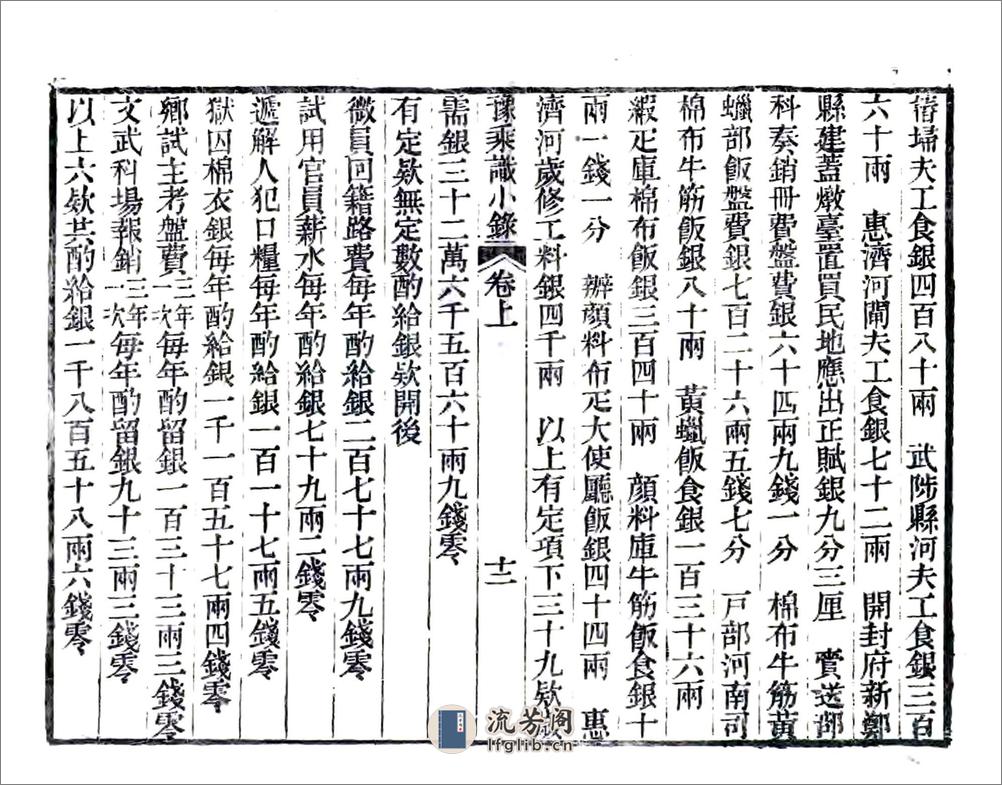 椿埽夫工食銀四百八十兩　武陟縣河夫工食銀三百
六十兩　惠濟河閘夫工食銀七十二兩　開封府新鄭
縣建蓋燉臺置買民地應出正賦銀九分三厘　賫送部
科奏銷冊費盤費銀六十四兩九錢一分　棉布牛筋黃
蠟部飯盤費銀七百二十六兩五錢七分　戸部河南司
棉布牛筋飯銀八十兩　黃蠟飯食銀一百三十六兩
緞疋庫棉布飯銀三百四十兩　顔料庫牛筋飯食銀十
兩一錢一分　辦顔料布疋大使廳飯銀四十四兩　惠
濟河歲修工料銀四千兩　以上有定項下三十九欵
豫乘識小錄　卷上　十二
需銀三十二萬六千五百六十兩九錢零
有定欵無定數酌給銀欵開後
微員回籍路費每年酌給銀二百七十兩九錢零
試用官員薪水每年酌給銀七十九兩二錢零
遞解人犯口糧每年酌給銀一百一十七兩五錢零
獄囚棉衣銀每年酌給銀一千一百五十七兩四錢零
鄉試主考盤費三年一次每年酌留銀一百三十三兩三錢零
文武科場報銷三年一次每年酌留銀九十三兩三錢零
以上六欵共酌給銀一千八百五十八兩六錢零
流芳阁
lfglib.cn